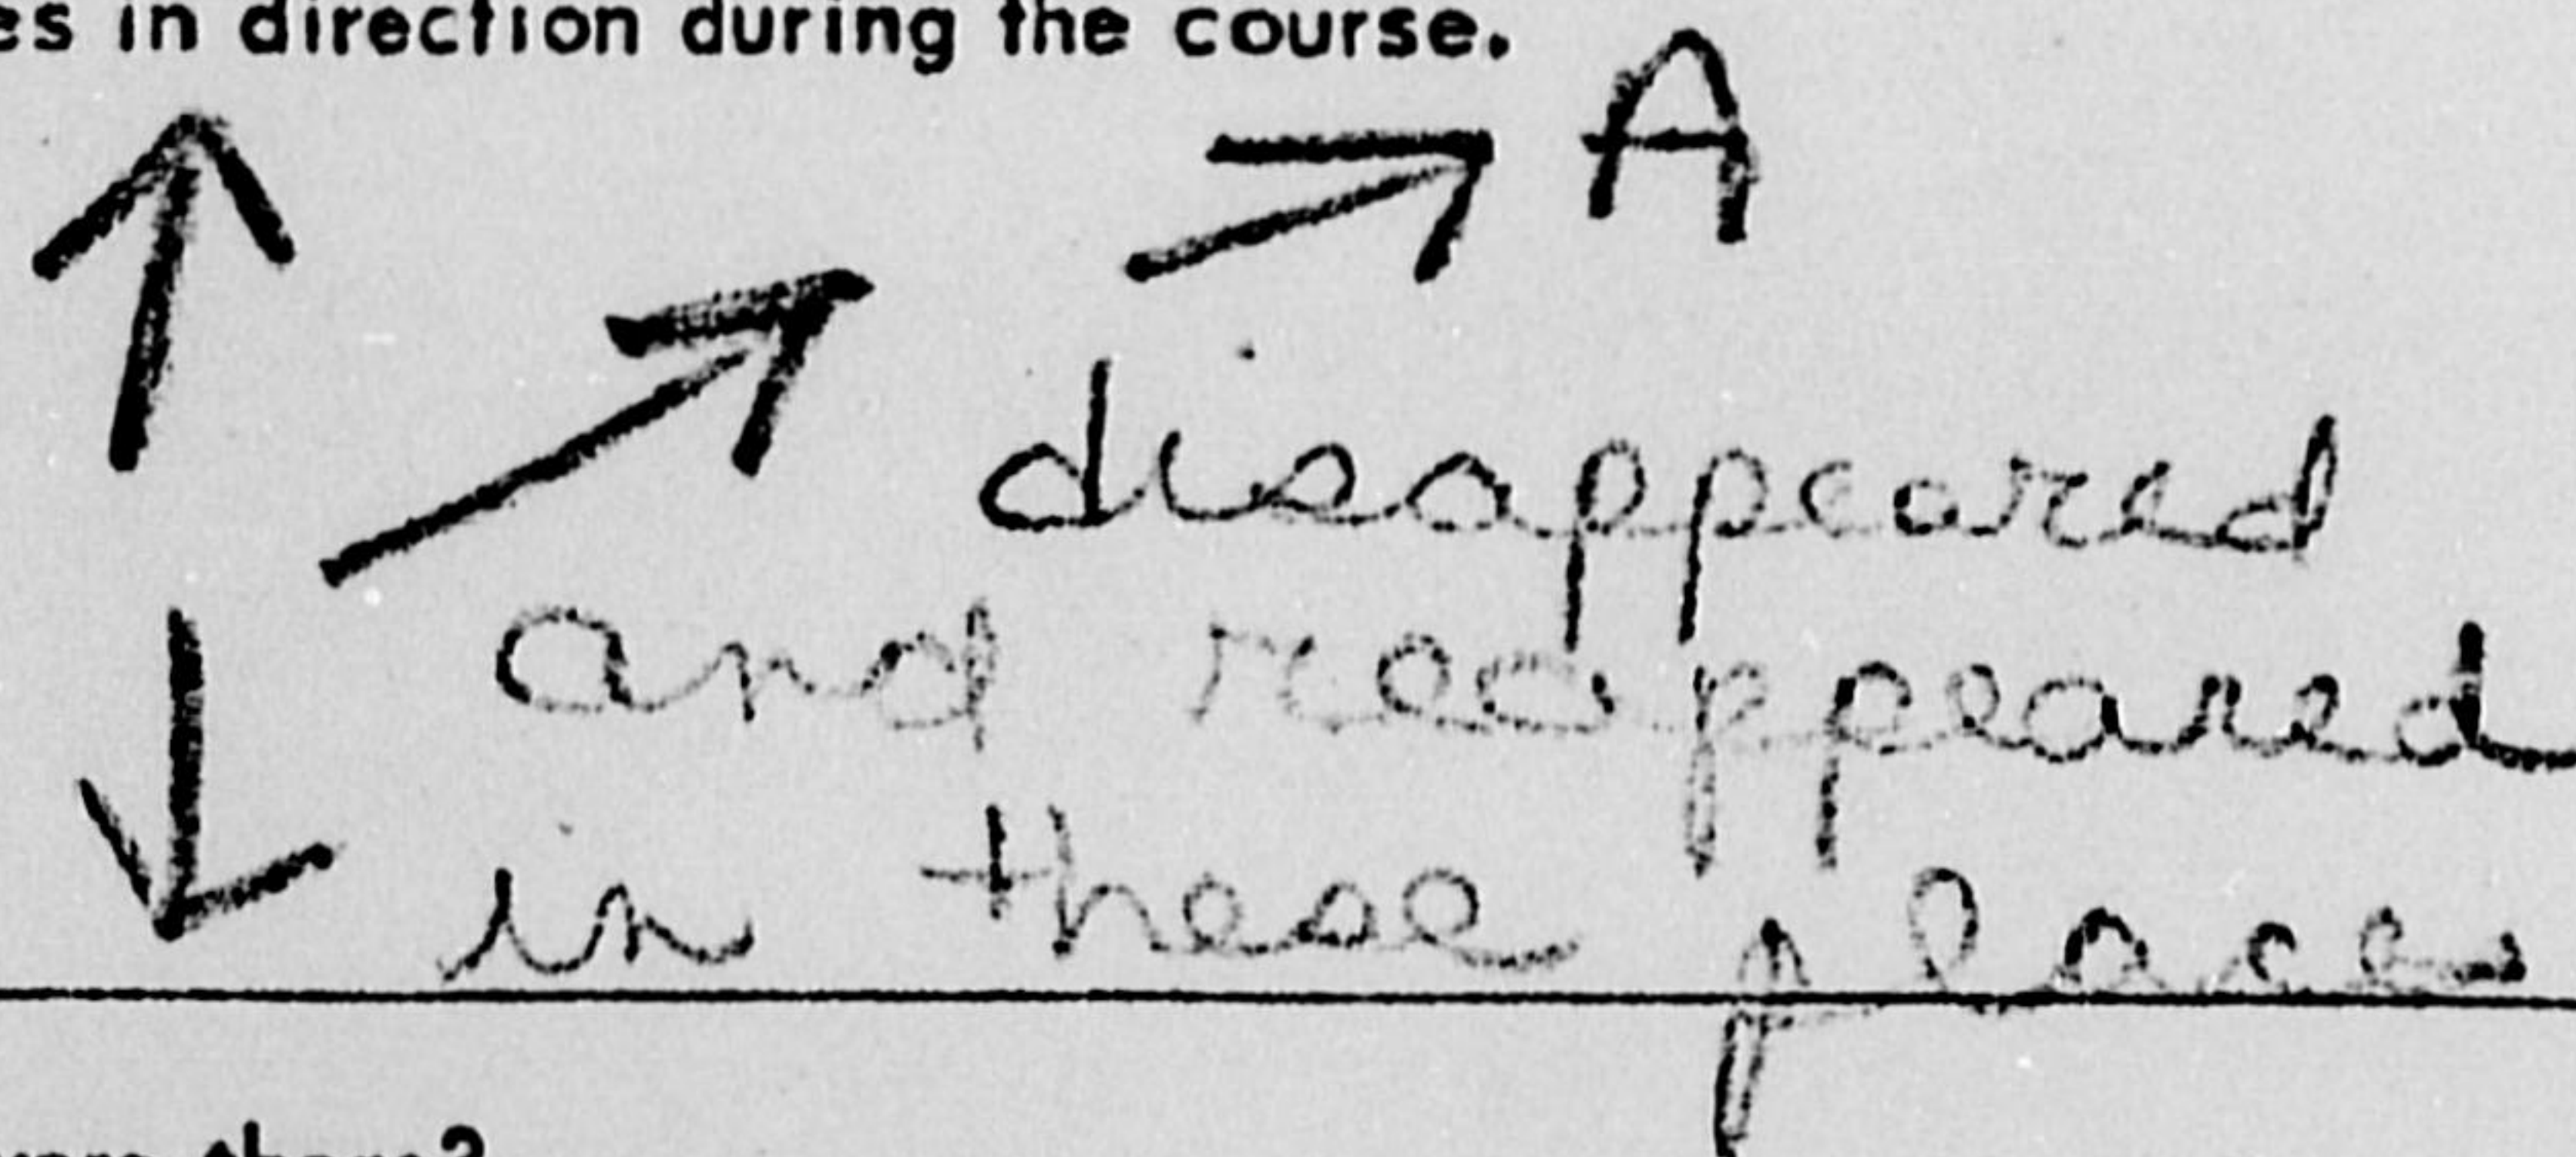 es in direction during the course.
A
disappeared
and reappeared
in these places
there?